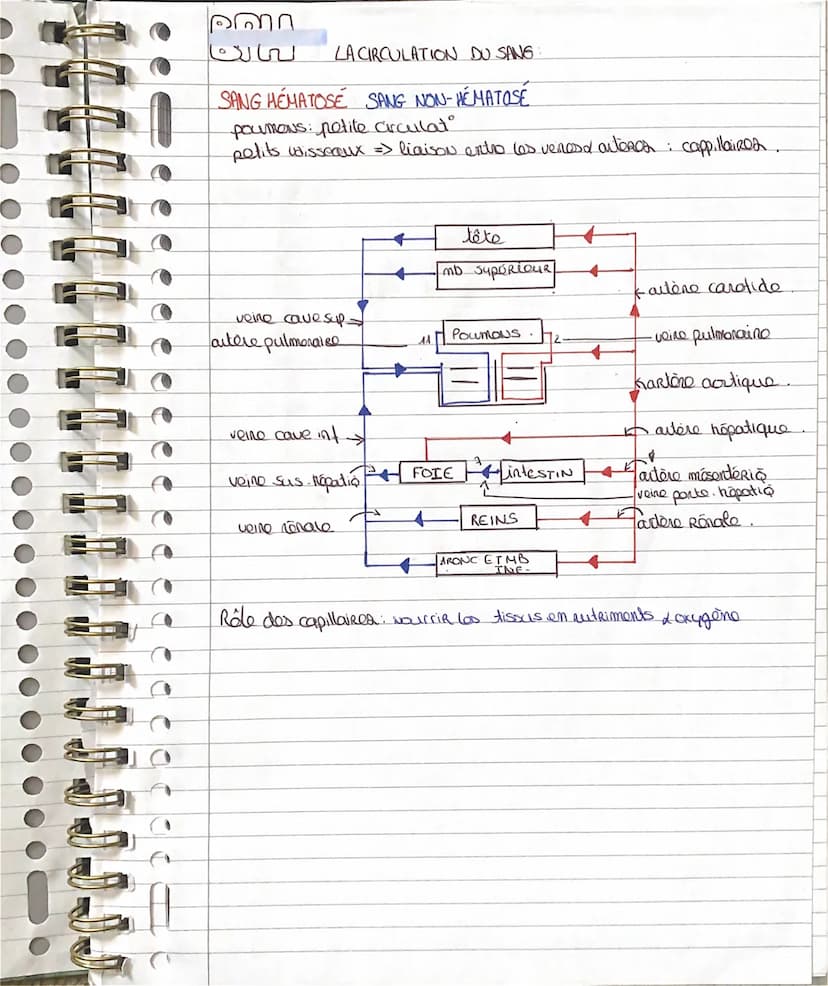 LA CIRCULATION DU SANG:
SANG HÉMATOSÉ SANG NON-HÉMATOSÉ
poumons: petite circulat°
petits vaisseaux => liaison entre les veines & artères : cappillaires.
tête
mb supérieur
artère carotide.
veine cave sup
Poumons.
artère pulmonaire 1 2 veine pulmonaire
artère aortique.
veine cave inf
artère hépatique.
veine sus-hépatiq FOIE 3 intestin artère mésentériq
veine porte-hépatiq
veine rénale REINS artère Rénale.
TRONC ET MB
INF.
Rôle des capillaires: nourrir les tissus en nutriments & oxygène